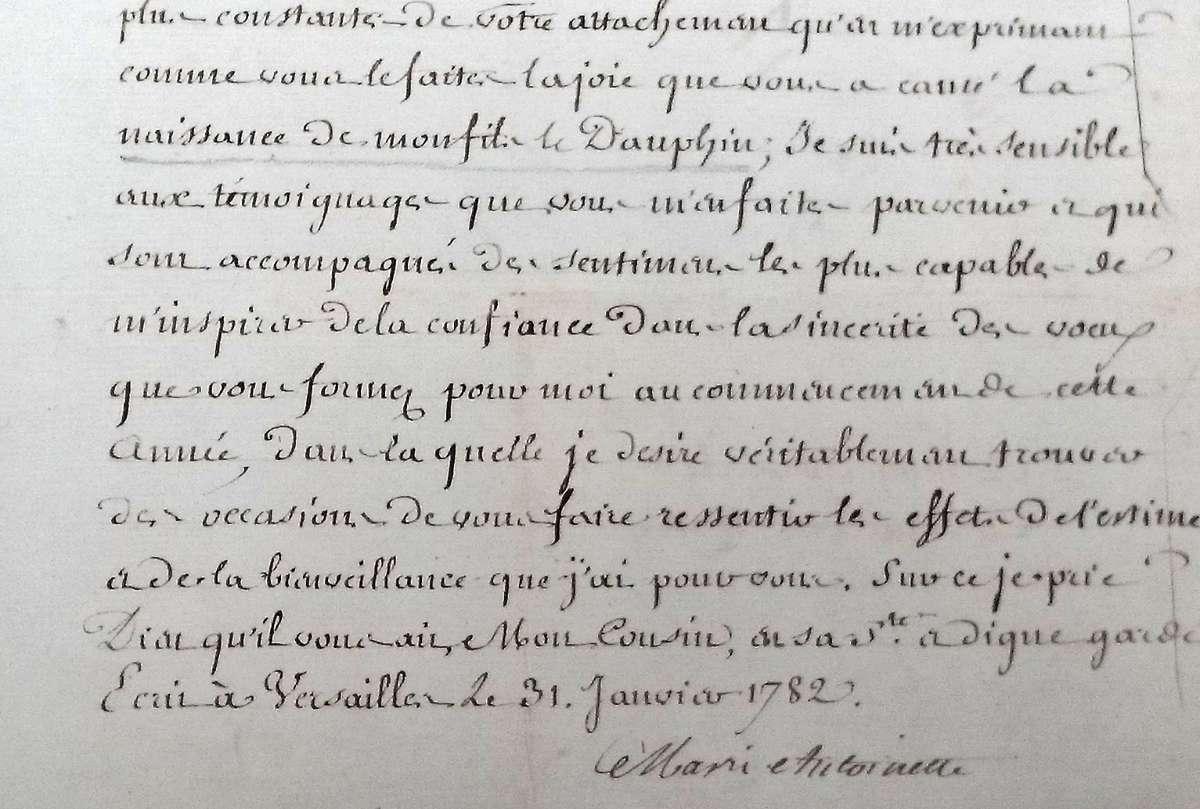 plus constantes de votre attachemen qu'en m'exprimant
comme vous le faites la joie que vous a causé la
naissance de mon fils le Dauphin; Je suis très sensible
aux témoignages que vous m'en faites parvenir et qui
sont accompagnés des sentimens les plus capables de
m'inspirer de la confiance dans la sincerité des voeux
que vous formez pour moi au commencemen de cette
Année, dans la quelle je desire véritablemen trouver
des occasions de vous faire ressentir les effets de l'estime
et de la bienveillance que j'ai pour vous. Sur ce je prie
Dieu qu'il vous ait, Mon Cousin, en sa ste. et digne garde
Ecrit à Versailles Le 31. Janvier 1782.
Marie Antoinette